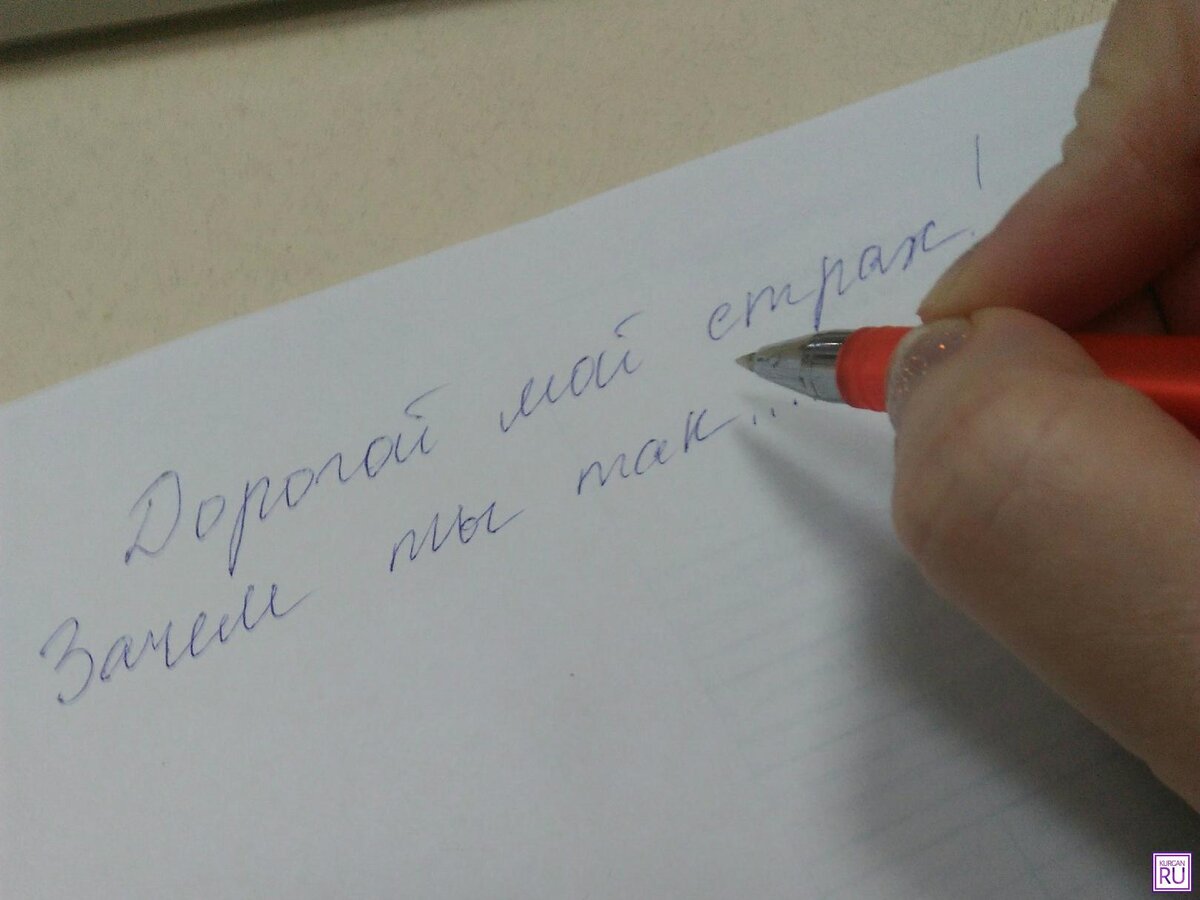 Дорогой мой страх!
Зачем ты так...
KURGAN
RU